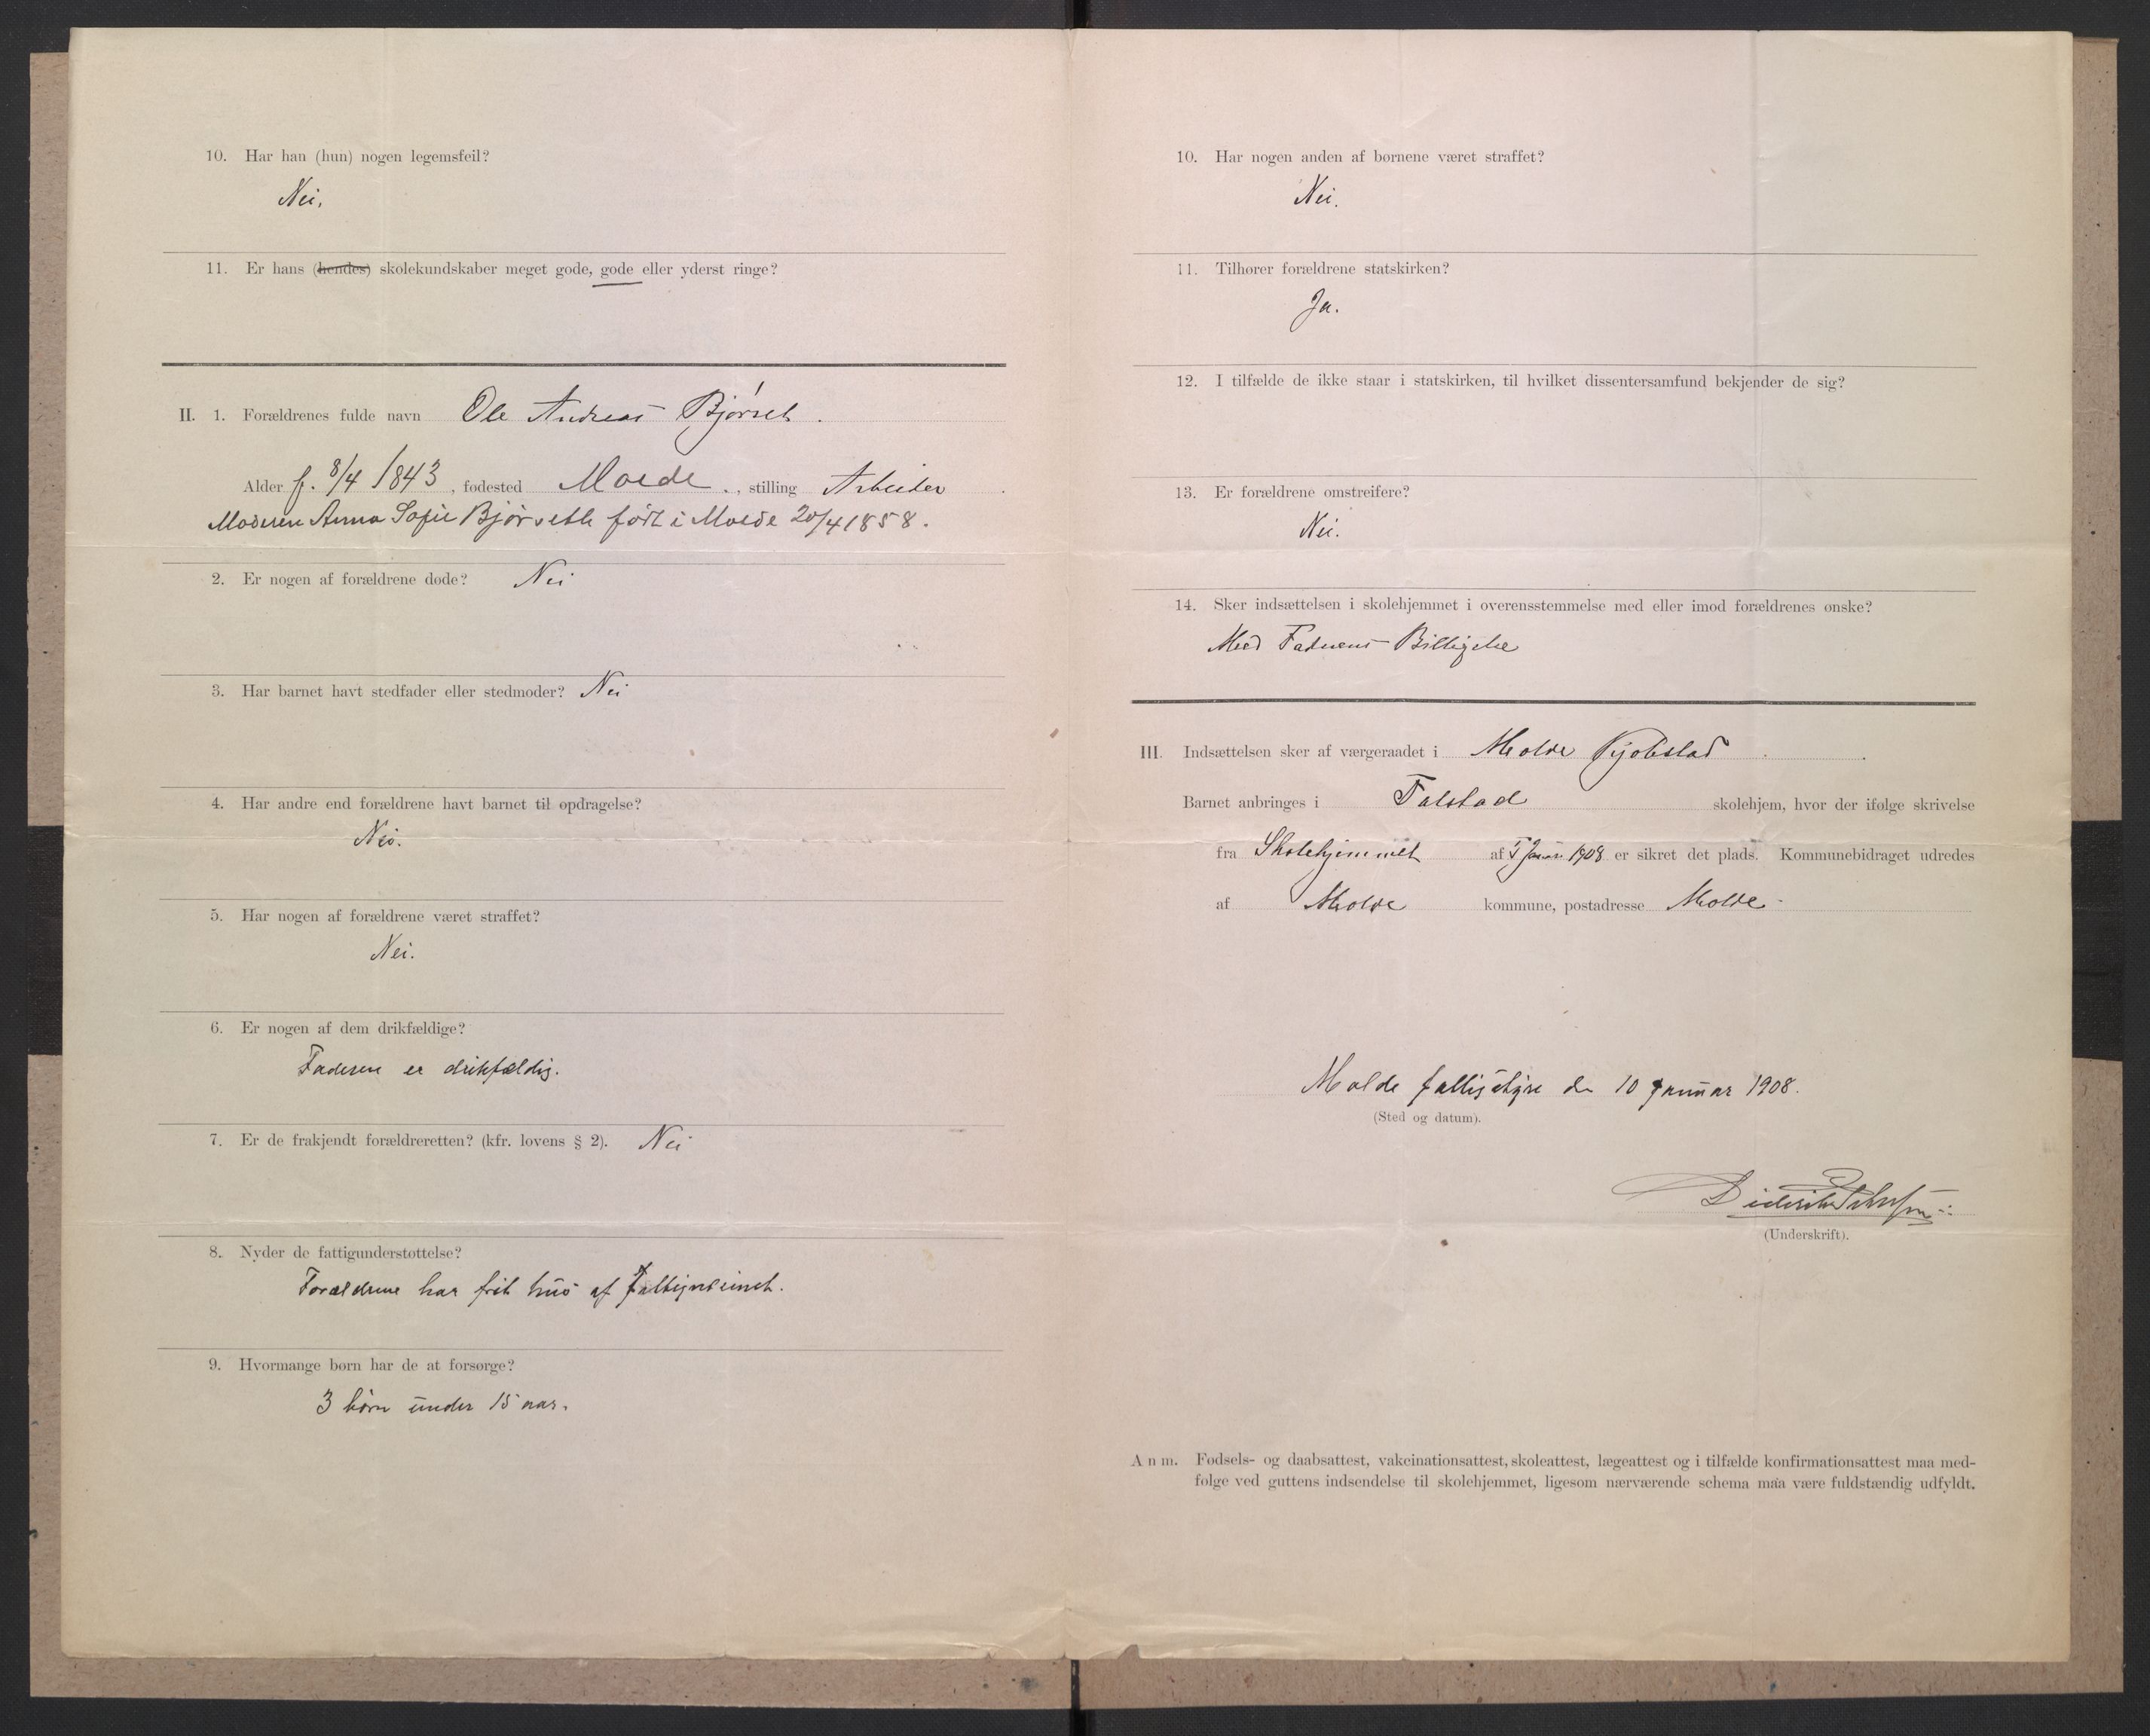 10. Har han (hun) nogen legemsfeil?
Nei.
11. Er hans (hendes) skolekundskaber meget gode, gode eller yderst ringe?
II. 1. Forældrenes fulde navn Ole Andreas Bjørset.
Alder f. 8/4 1843, fødested Molde., stilling Arbeider
Moderen Anna Sofie Bjørseth født i Molde 20/4 1858.
2. Er nogen af forældrene døde? Nei
3. Har barnet havt stedfader eller stedmoder? Nei
4. Har andre end forældrene havt barnet til opdragelse?
Nei.
5. Har nogen af forældrene været straffet?
Nei.
6. Er nogen af dem drikfældige?
Faderen er drikfældig.
7. Er de frakjendt forældreretten? (kfr. lovens § 2). Nei
8. Nyder de fattigunderstøttelse?
Forældrene har frit hus af
9. Hvormange børn har de at forsørge?
3 børn under 15 aar.
10. Har nogen anden af børnene været straffet?
Nei.
11. Tilhører forældrene statskirken?
Ja.
12. I tilfælde de ikke staar i statskirken, til hvilket dissentersamfund bekjender de sig?
13. Er forældrene omstreifere?
Nei.
14. Sker indsættelsen i skolehjemmet i overensstemmelse med eller imod forældrenes ønske?
Med Faderens Billigelse
III. Indsættelsen sker af værgeraadet i Molde Kjøbstad.
Barnet anbringes i Falstad skolehjem, hvor der ifølge skrivelse
fra Skolehjemmet af Januar 1908 er sikret det plads. Kommunebidraget udredes
af Molde kommune, postadresse Molde.
Molde fattigstyre den 10 Januar 1908.
(Sted og datum).
Diderik
(Underskrift).
Anm. Fødsels- og daabsattest, vakcinationsattest, skoleattest, lægeattest og i tilfælde konfirmationsattest maa med-
følge ved guttens indsendelse til skolehjemmet, ligesom nærværende schema maa være fuldstændig udfyldt.